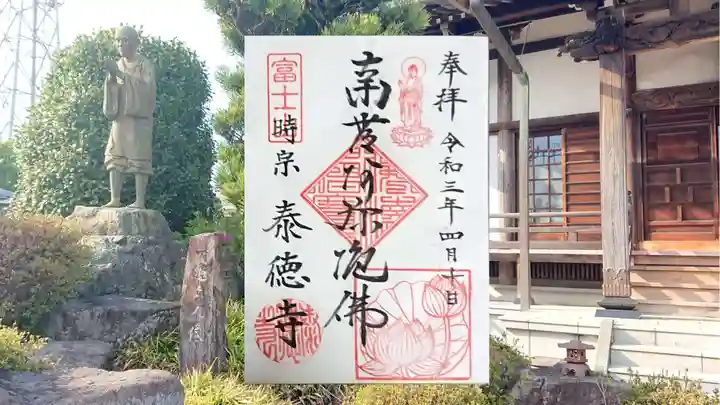 奉拝 令和三年四月十日
南無阿弥陀佛
富士
時宗 泰徳寺